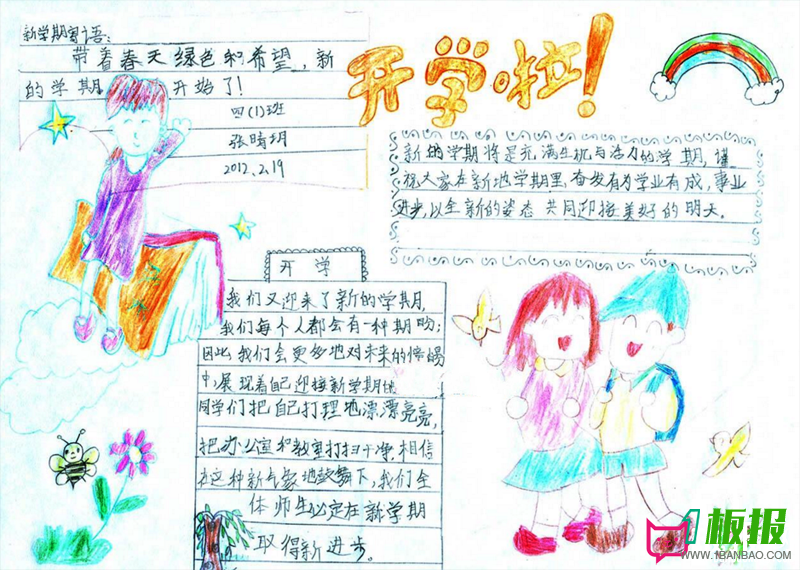 新学期寄语:
带着春天绿色和希望,新
的学期 开始了!
四(1)班
张晴玥
2012.2.19
开学啦!
新的学期将是充满生机与活力的学期,谨
祝大家在新地学期里,奋发有为学业有成,事业
进步,以全新的姿态 共同迎接美好的明天。
开 学
我们又迎来了新的学期,
我们每个人都会有一种期盼;
因此,我们会更多地对未来的
中,展现着自己迎接新学期
同学们把自己打理地漂漂亮亮,
把办公室和教室打扫干净,相信
在这种新气象地鼓舞下,我们全
体师生必定在新学期
取得新进步。
1板报
WWW.1BANBAO.COM